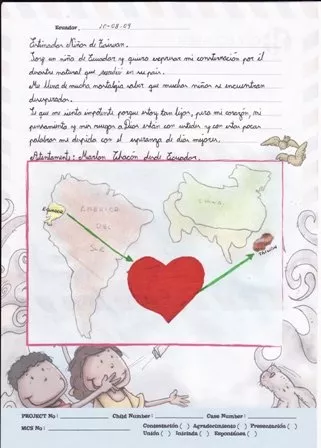 Ecuador, 15-08-09
Estimados Niños de Taiwan.
Soy un niño de Ecuador y quiero expresar mi consternación por el
desastre natural que sucedió en su país.
Me llena de mucha nostalgia saber que muchos niños se encuentran
desesperados.
Sé que me siento impotente porque estoy tan lejos, pero mi corazón, mi
pensamiento y mis ruegos a Dios están con ustedes y con estas pocas
palabras me despido con la esperanza de días mejores.
Atentamente: Marlon Chacón desde Ecuador.
ECUADOR
AMERICA
DEL
SUR
CHINA
TAIWAN
PROJECT No: Child Number: Case Number:
MCS No: Consternación ( ) Agradecimiento ( ) Presentación ( )
Unida ( ) Iniciada ( ) Espontánea ( )